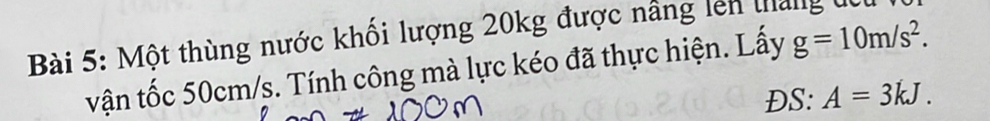 Bài 5: Một thùng nước khối lượng 20kg được nâng lên thẳng đều với
vận tốc 50cm/s. Tính công mà lực kéo đã thực hiện. Lấy g = 10m/s².
100m
ĐS: A = 3kJ.